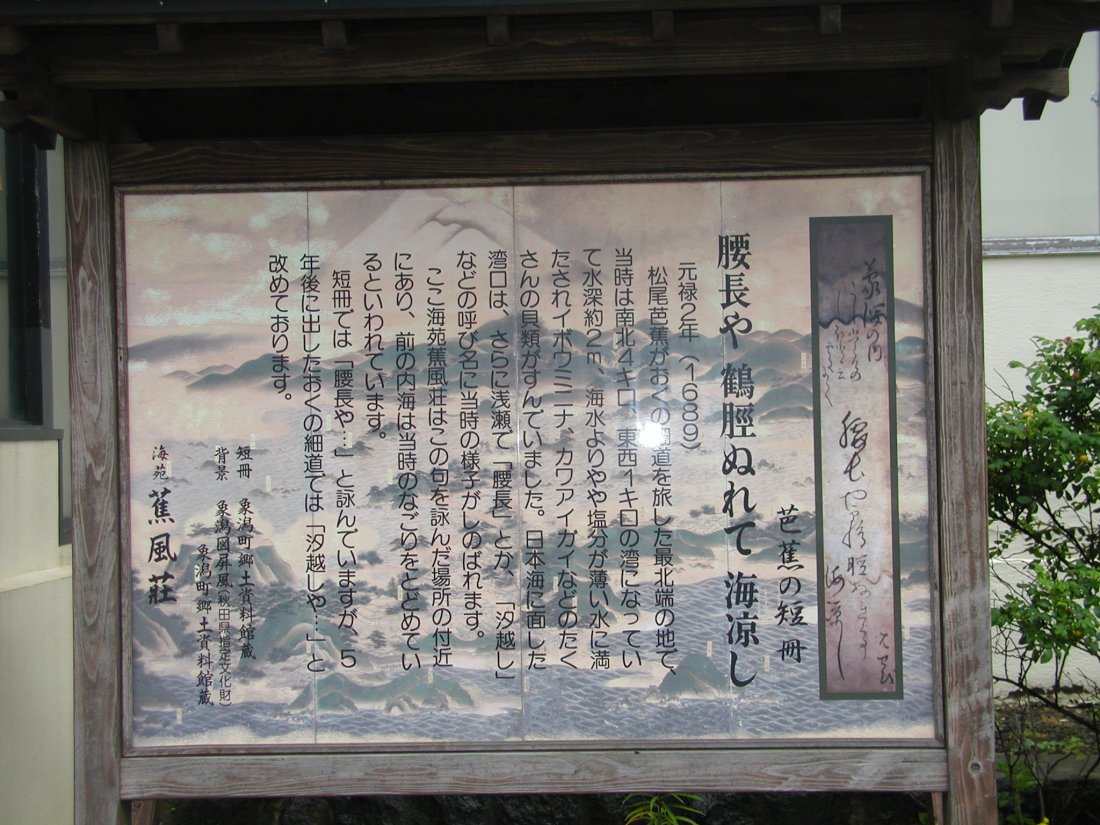 腰長や鶴脛ぬれて海涼し
芭蕉の短冊
元禄2年(1689)
松尾芭蕉がおくの細道を旅した最北端の地で、
当時は南北4キロ、東西1キロの湾になってい
て水深約2m、海水よりやや塩分が薄い水に満
たされイボウミニナ、カワアイガイなどのたく
さんの貝類がすんでいました。日本海に面した
湾口は、さらに浅瀬で「腰長」とか、「汐越し」
などの呼び名に当時の様子がしのばれます。
ここ海苑蕉風荘はこの句を詠んだ場所の付近
にあり、前の内海は当時のなごりをとどめてい
るといわれています。
短冊では「腰長や…」と詠んでいますが、5
年後に出したおくの細道では「汐越しや…」と
改めております。
短冊 象潟町郷土資料館蔵
背景 象潟図屏風(秋田県指定文化財)
象潟町郷土資料館蔵
海苑 蕉風荘